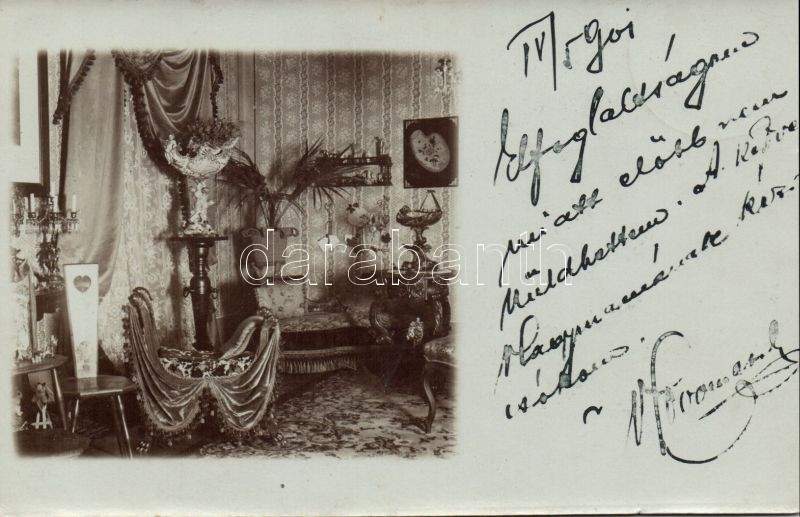 IV/5 901
Elfoglaltságom
miatt előbb nem
küldhettem. A kedves
Nagymamának kézi
csókom.
darabanth.com